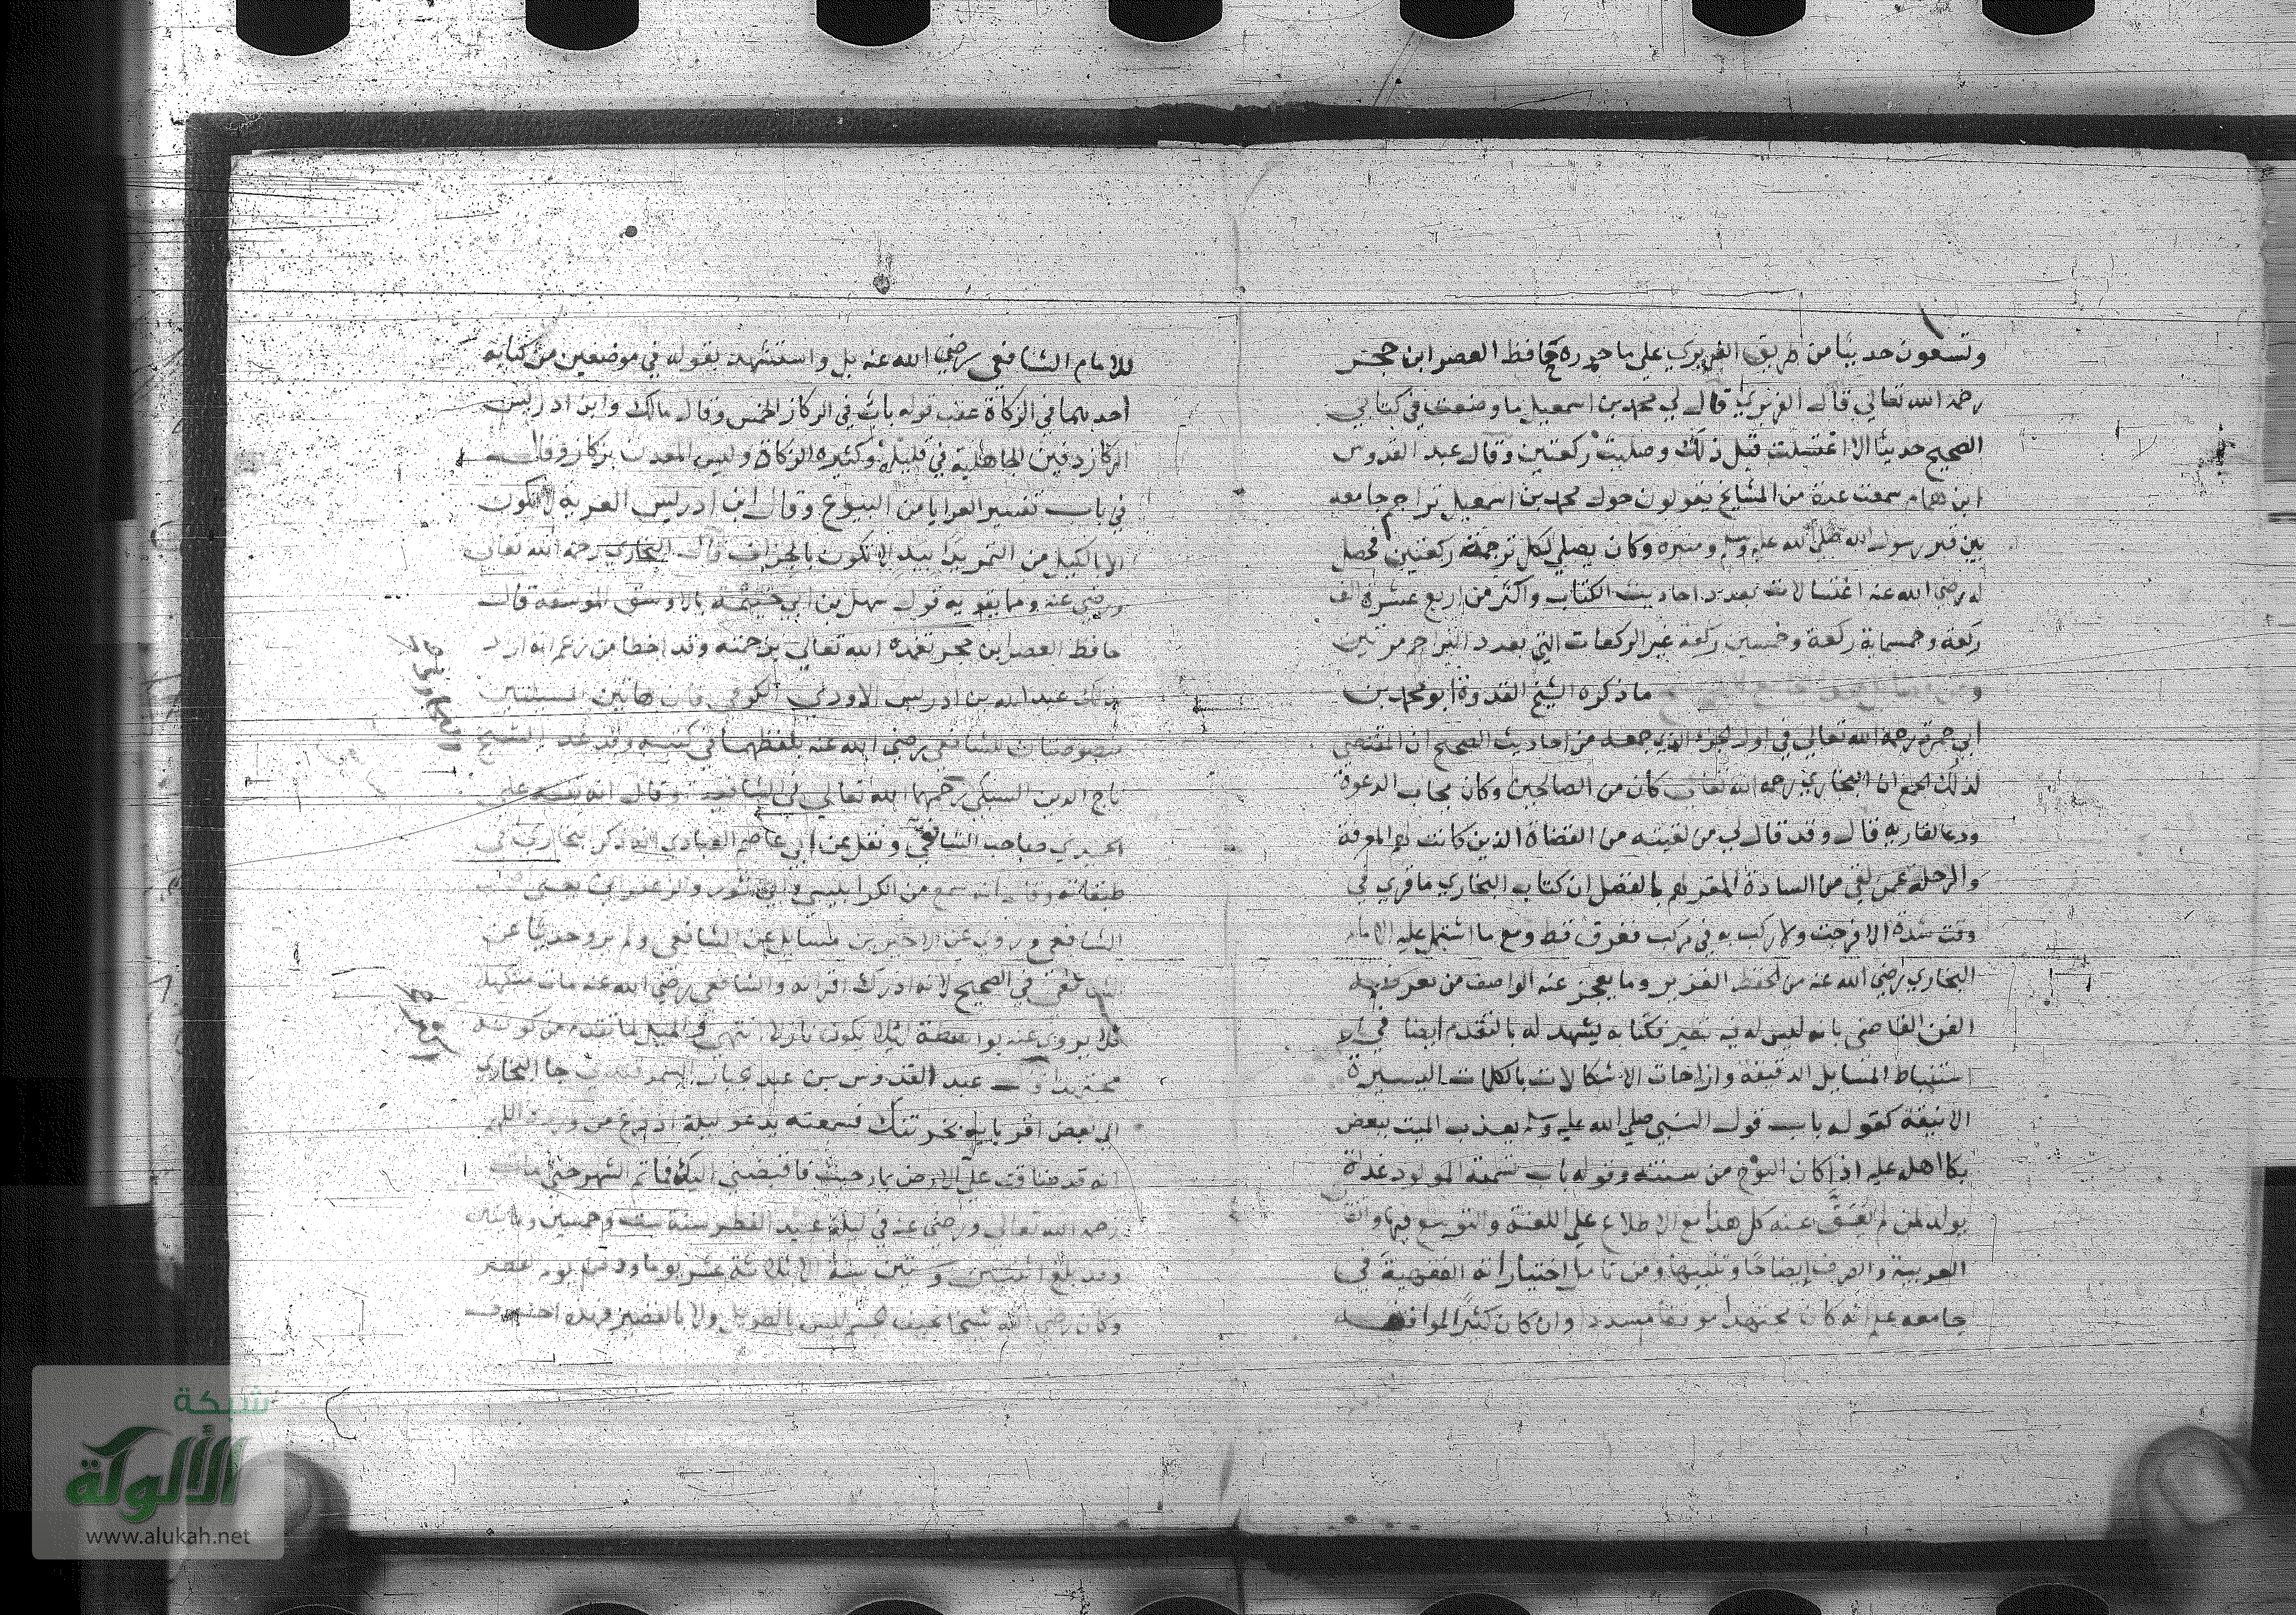 وتسعون حديثا من طريق الفربري علي ما حرره حافظ العصر ابن حجر
رحمه الله تعالي قال الفربري قال لي محمد بن اسمعيل ما وضعت في كتابي
الصحيح حديثا الا اغتسلت قبل ذلك وصليت ركعتين وقال عبد القدوس
ابن همام سمعت عدة من المشايخ يقولون حول محمد بن اسمعيل تراجم جامعه
بين قبر رسول الله صلي الله عليه وسلم ومنبره وكان يصلي لكل ترجمة ركعتين فحصل
له رضي الله عنه اغتسالات بعدد احاديث الكتاب واكثر من اربع عشرة الف
ركعة وخمسماية ركعة وخمسين ركعة غير الركعات التي بعدد التراجم مرتين
ما ذكره الشيخ القدوة ابو محمد بن
ابي جمرة رحمه الله تعالي في اول الجزء الذي جمعه من احاديث الصحيح ان المقتضي
لذلك الجمع ان البخاري رحمه الله تعالي كان من الصالحين وكان مجاب الدعوة
ودعا لقاريه قال وقد قال لي من لقيته من القضاة الذين كانت لهم المعرفة
والرحلة عمن لقي من السادة المقر لهم بالفضل ان كتاب البخاري ما قري في
وقت شدة الا فرجت ولا ركب به في مركب فغرق قط ومع ما اشتمل عليه الامام
البخاري رضي الله عنه من الحفظ الغزير وما يعجز عنه الواصف من
الفن القاضي بانه ليس له فيه نظير فكتابه يشهد له بالتقدم ايضا في
استنباط المسايل الدقيقة وازاحات الاشكالات بالكلمات اليسيرة
الانيقة كقوله باب قول النبي صلي الله عليه وسلم يعذب الميت ببعض
بكا اهله عليه اذا كان النوح من سنته وقوله باب تسمية المولود غداة
يولد لمن لم يعق عنه كل هذا مع الاطلاع علي اللغة والتوسع فيها
العربية والصرف ايضاحا وتنبيها ومن تامل اختياراته الفقهية في
جامعه علم انه كان مجتهدا موفقا مسددا وان كان كثير الموافقة
للامام الشافعي رضي الله عنه بل واستشهد بقوله في موضعين من كتابه
احدهما في الزكاة عقب قوله باب في الركاز الخمس وقال مالك وابن ادريس
الركاز دفين الجاهلية في قليله وكثيره الزكاة وليس المعدن بركاز
في باب تفسير العرايا من البيوع وقال ابن ادريس العرية لا تكون
الا بالكيل من التمر يدا بيد لا تكون بالجزاف قال البخاري رحمه الله تعالي
ورضي عنه ومما يقويه قول سهل بن ابي حثمة بالاوسق الموسقة قال
حافظ العصر ابن حجر تغمده الله تعالي برحمته وقد اخطا من زعم انه اراد
بذلك عبد الله بن ادريس الاودي الكوفي فان هاتين المسئلتين
منصوصتان للشافعي رضي الله عنه بلفظهما في كتبه وقد عد الشيخ
تاج الدين السبكي رحمهما الله تعالي في الشافعية وقال انه تفقه علي
الحميدي صاحب الشافعي ونقل عن ابي عاصم العبادي انه ذكر البخاري في
طبقاته وقال انه سمع من الكرابيسي وابي ثور والزعفراني يعني
الشافعي وروي عن الاخيرين مسايل عن الشافعي ولم يرو حديثا عن
الشافعي في الصحيح لانه ادرك اقرانه والشافعي رضي الله عنه مات متكهلا
فلا يروي عنه بواسطة لئلا يكون نازلا انتهي لما تقدم من كونه
مجتهدا عبد القدوس بن عبد الجبار السمرقندي جا البخاري
الي بعض اقربايه بخرتنك فسمعته يدعو ليلة اذ فرغ من
انه قد ضاقت علي الارض بما رحبت فاقبضني اليك فما تم الشهر حتي مات
رحمه الله تعالي ورضي عنه في ليلة عيد الفطر سنة ست وخمسين ومائتين
وقد بلغ اثنتين وستين سنة الا ثلاثة عشر يوما ودفن يومه
وكان رضي الله شيخا نحيف الجسم ليس بالطويل ولا بالقصير فهذه